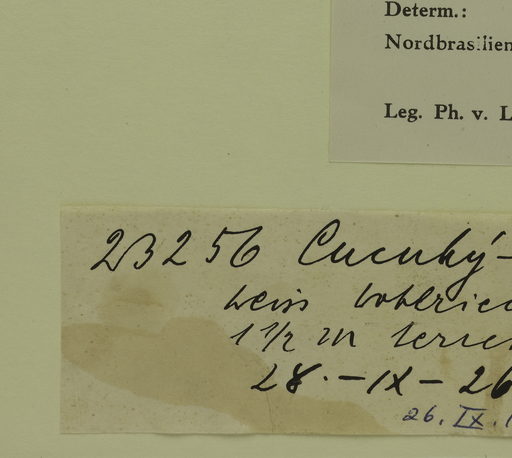 Determ.:
Nordbrasilien
Leg. Ph. v. L
23256 Cucuhý-
weiss wohlriec
1 1/2 m terre
28.-IX-26
26. IX. 1